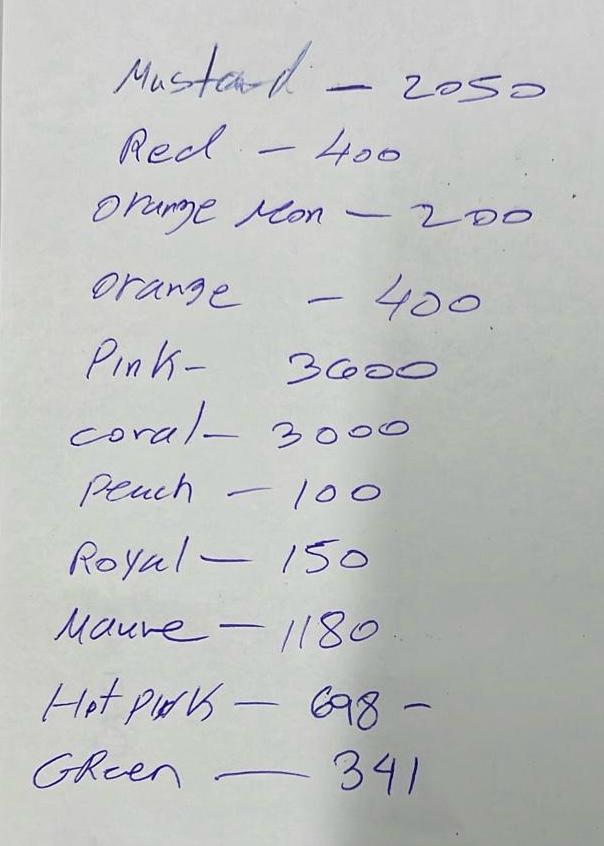 Mustard - 2050
Red - 400
Orange Mon - 200
Orange - 400
Pink - 3600
Coral - 3000
Peach - 100
Royal - 150
Mauve - 1180
Hot pink - 698 -
GReen - 341